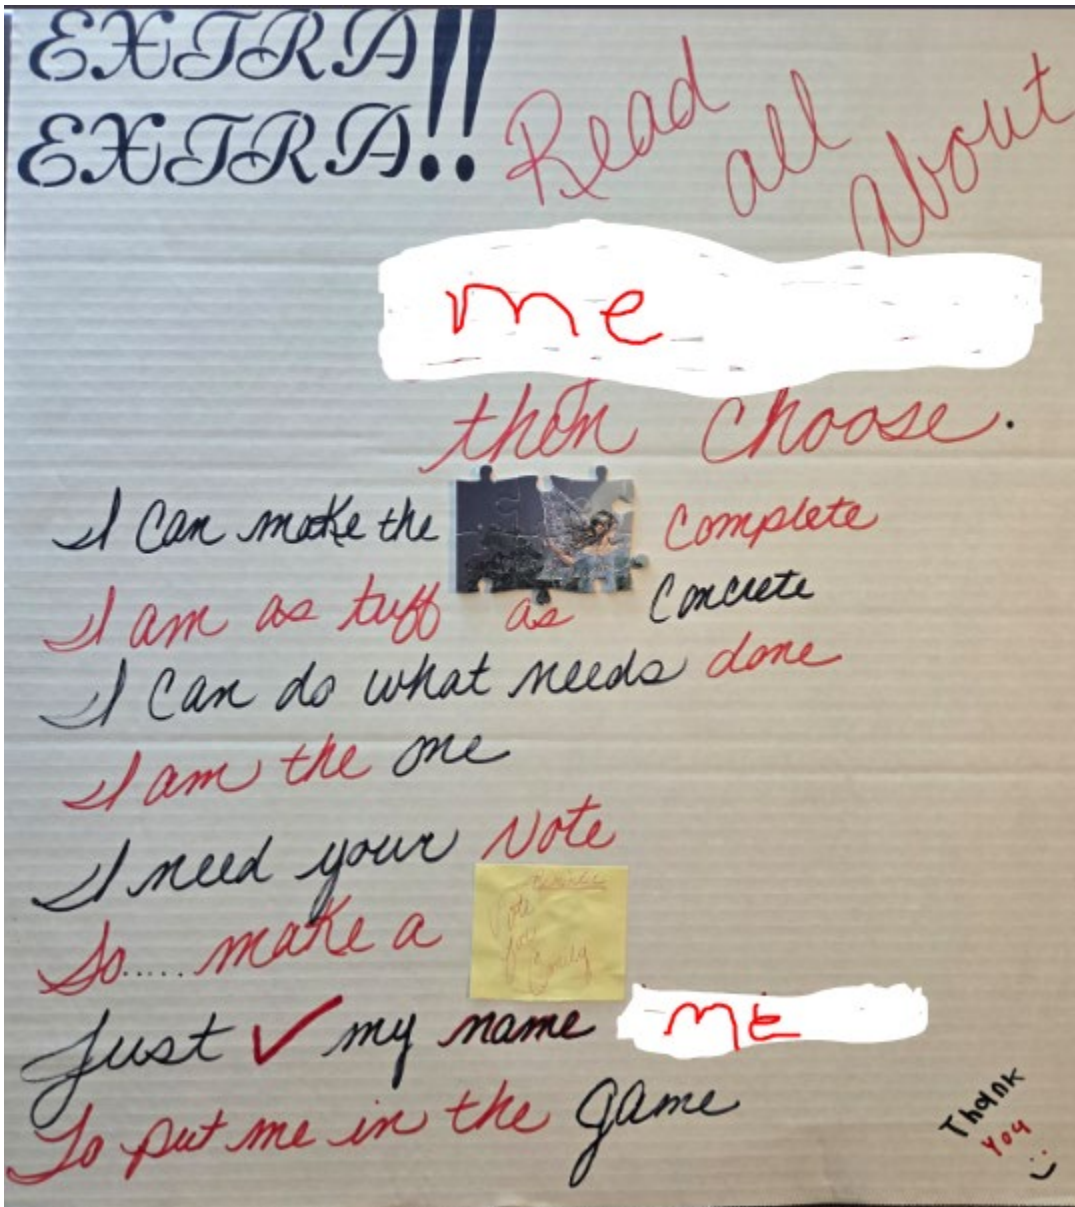 EXTRA!!
EXTRA!!
Read all about
me
then choose.
I can make the complete
I am as tuff as concrete
I can do what needs done
I am the one
I need your vote
So..... make a
Reminder
Vote
for
Emily
Just ✓ my name ME
To put me in the game
Thank
you